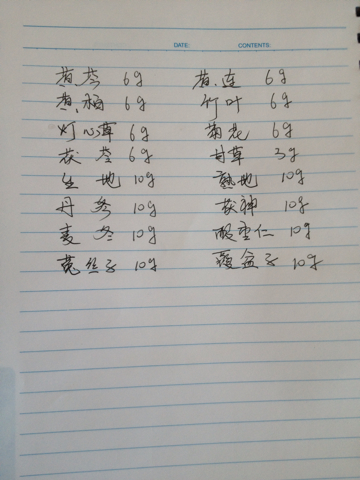 DATE: CONTENTS:
黄芩 6g 黄连 6g
黄柏 6g 竹叶 6g
灯心草 6g 菊花 6g
茯苓 6g 甘草 3g
生地 10g 熟地 10g
丹参 10g 茯神 10g
麦冬 10g 酸枣仁 10g
菟丝子 10g 覆盆子 10g